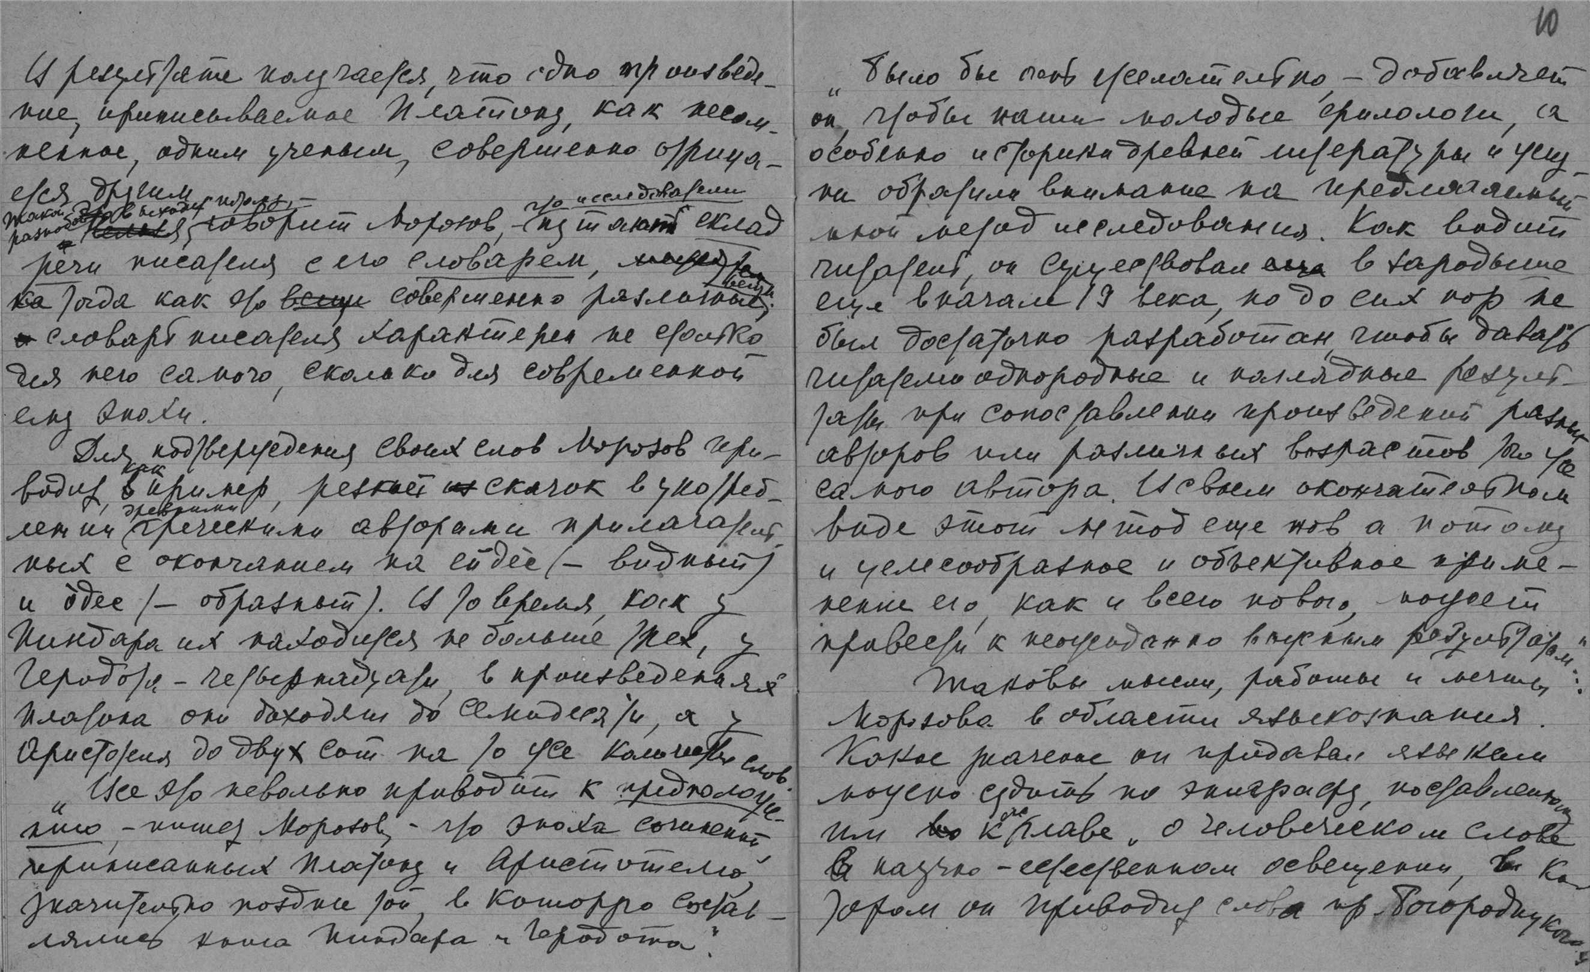 В результате получается, что одно произведе-
ние, приписываемое Платону, как несом-
ненное, одним ученым, совершенно отрица-
ется другим
что исследователи
говорит Морозов, – путают склад
речи писателя с его словарем,
тогда как это вещи совершенно различные,
словарь писателя характерен не столько
для него самого, сколько для современной
ему эпохи.
Для подтверждения своих слов Морозов при-
как
водит, в пример, резкий скачок в употреб-
древними
лении греческими авторами прилагатель-
ных с окончанием на ейдес (– видный)
и одес (– образный). В то время, как у
Пиндара их находится не больше трех, у
Геродота – четырнадцати, в произведениях
Платона они доходят до семидесяти, а у
Аристотеля до двух сот на то же количество слов.
„Все это невольно приводит к предположе-
нию, – пишет Морозов, – что эпоха сочинений,
приписанных Платону и Аристотелю,
значительно позднее той, в которую состав-
лялись книги Пиндара и Геродота".
10
„Было бы очень желательно, – добавляет
он, чтобы наши молодые филологи, а
особенно историки древней литературы и
обратили внимание на предлагаемый
мной метод исследования. Как видит
читатель, он существовал в зародыше
еще в начале 19 века, но до сих пор не
был достаточно разработан, чтобы давать
читателю однородные и наглядные резуль-
таты при сопоставлении произведений разных
авторов или различных возрастов того же
самого автора. В своем окончательном
виде этот метод еще нов, а потому
и целесообразное и объективное приме-
нение его, как и всего нового, может
привести к неожиданно важным результатам"...
Таковы мысли, работы и мечты
Морозова в области языкознания.
Какое значение он придавал языкам
можно судить по эпиграфу, поставленному
им к его главе „О человеческом слове
в научно-естественном освещении, в ко-
тором он приводит слова пр. Богородицкого: